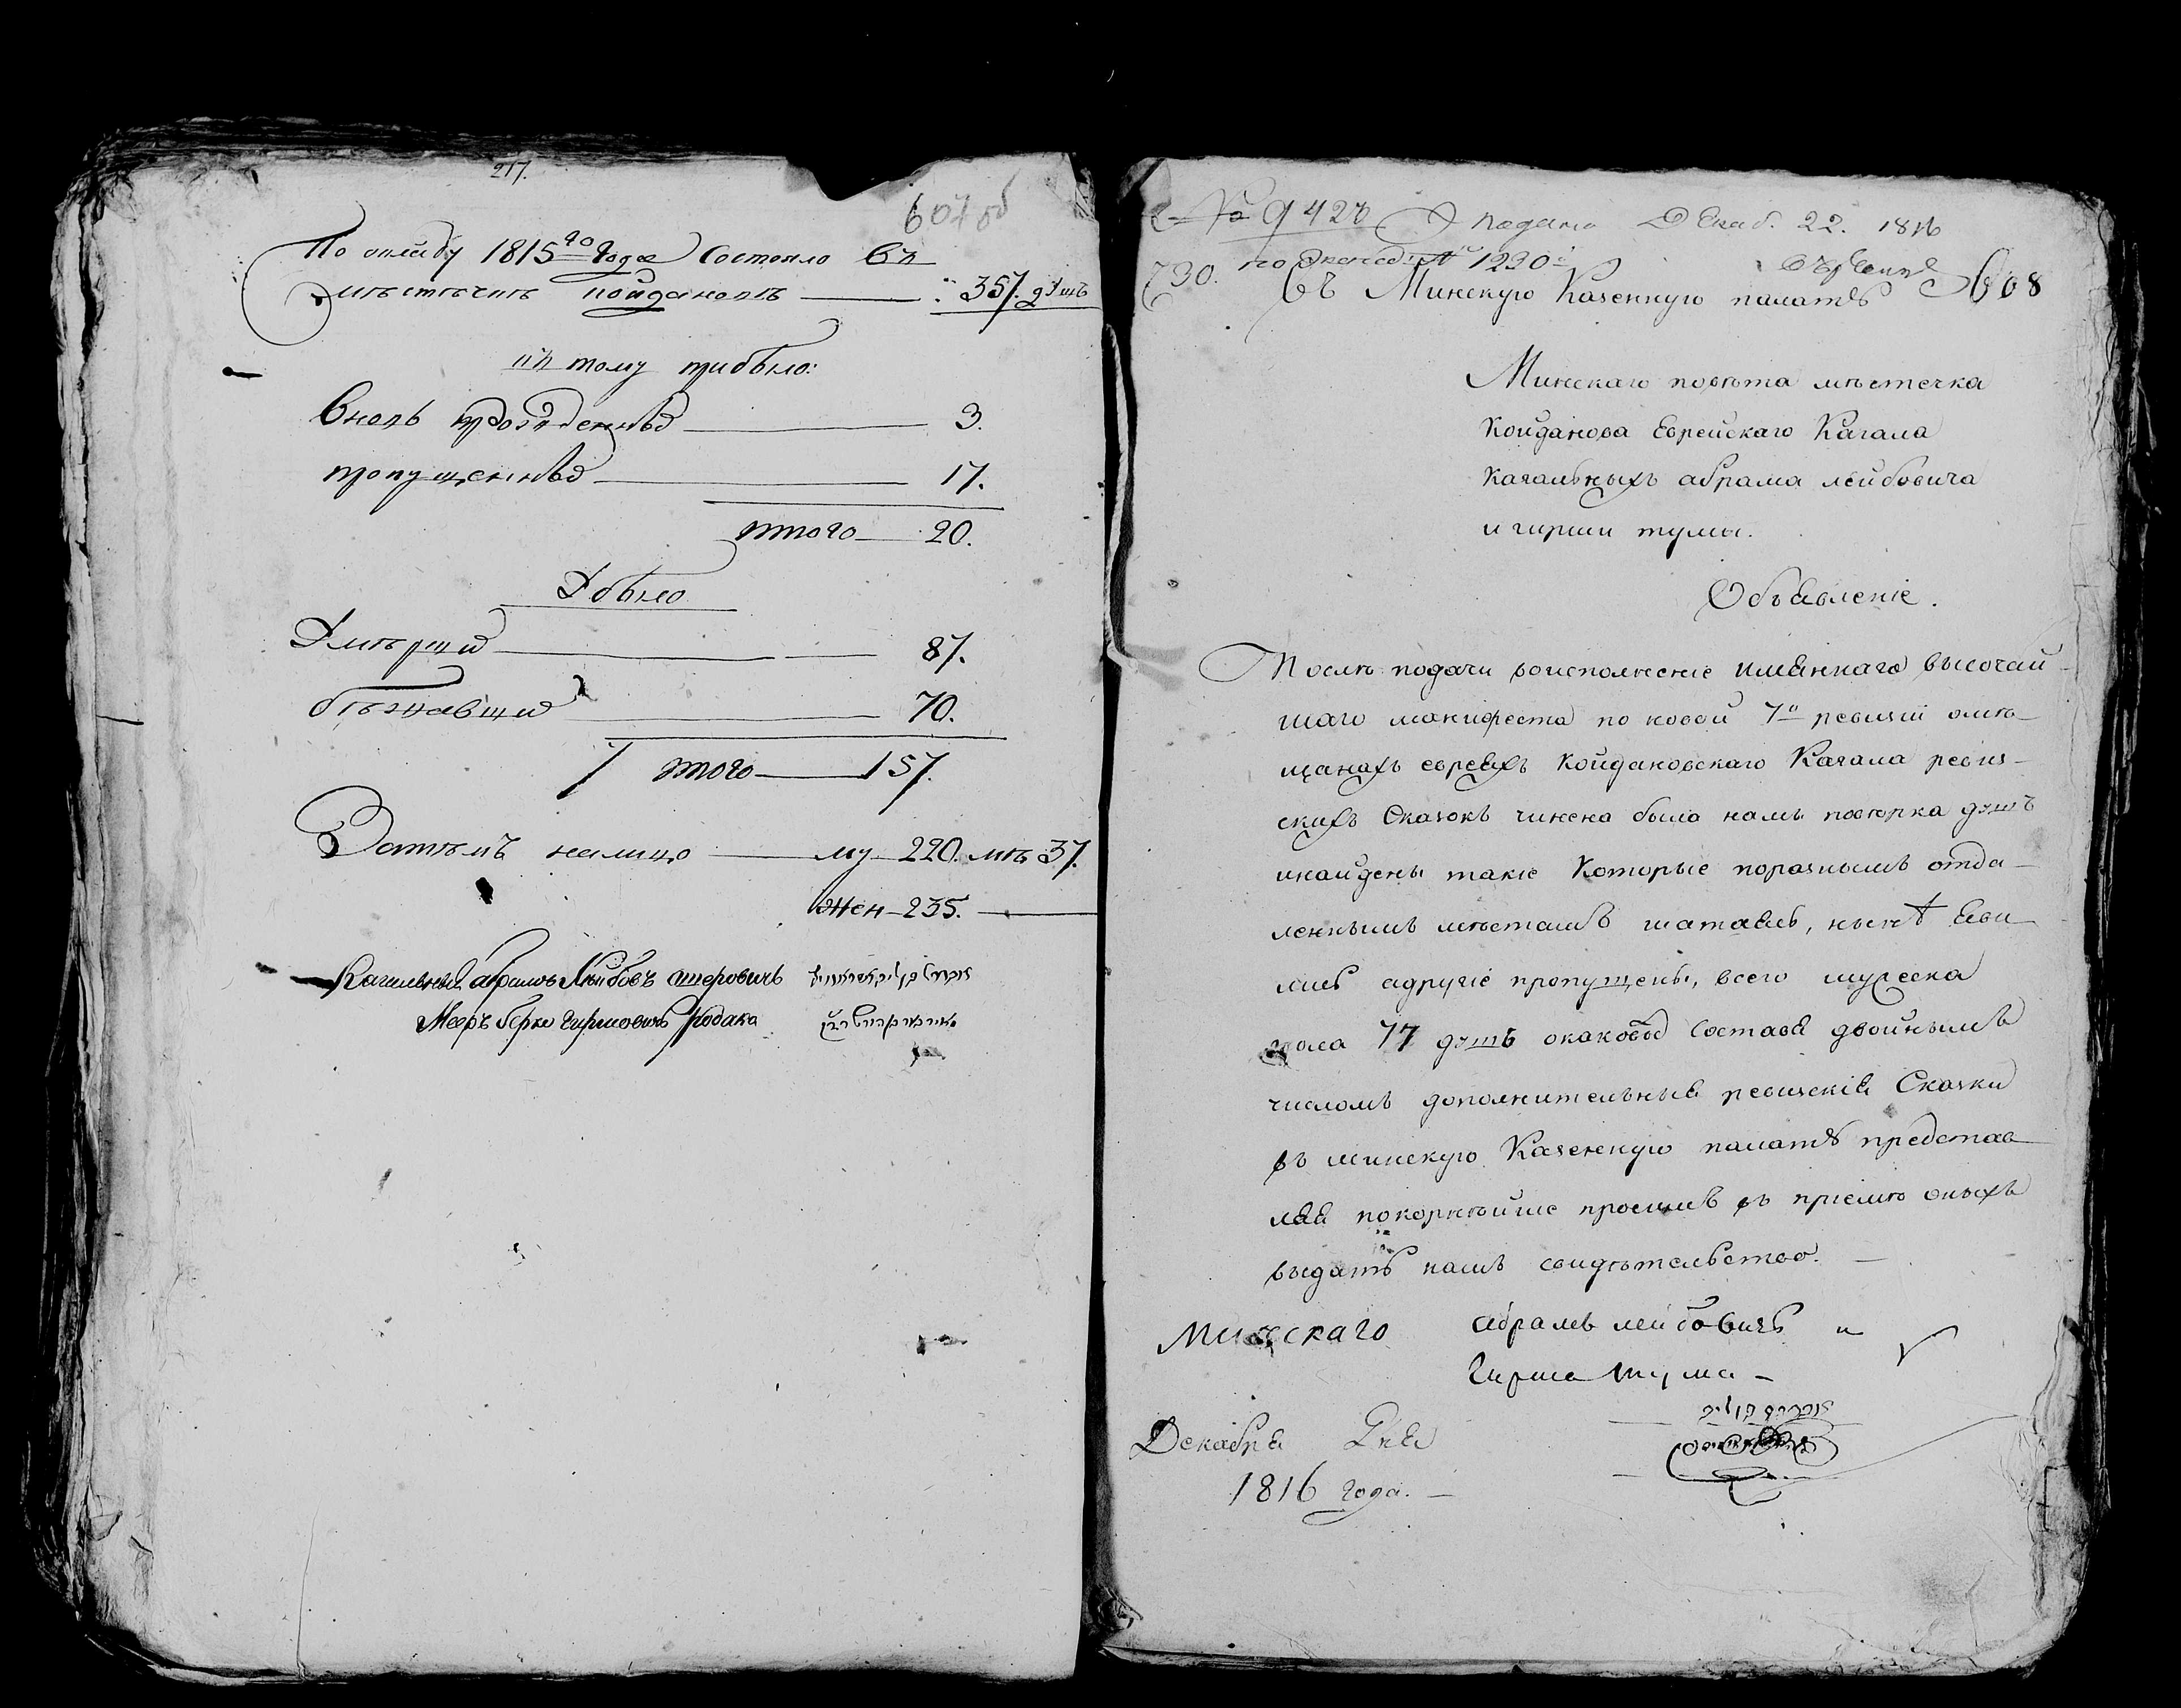 217.
607 об
По окладу 1815го Года Состояло Въ
мѣстѣчкѣ Койдановѣ 357. душъ
къ тому прибыло:
Вновь рожденныхъ 3.
пропущенныхъ 17.
Итого 20.
Убыло
Умѣрших 87.
бѣжавших 70.
Итого 157.
Затѣмъ налицо му 220. мѣ 37.
Жен 235.
Кагальный абрамъ Лейбовъ
Меэръ берко Гиршовичъ Рубака
№ 9428 Подано Декаб. 22. 1816
по Экспедиціи 1230
730. 608
Въ Минскую Казенную палатѣ
Минскаго повѣта мѣстечка
Койданова Еврейскаго Кагала
Кагальныхъ абрама лейбовича
и гирши тумы.
Объявленіе.
Послѣ подачи воисполненіе имяннаго высочай
шаго манифеста по новой 7й ревизіи омѣ-
щанахъ евреяхъ Койдановскаго Кагала ревиз-
скихъ Сказокъ чинена была намы повѣрка душъ
инайдены такіе Которые поразнымъ отда-
леннымъ мѣстамъ шатаясь, нынѣ яви
лись адругіе пропущены, всего мужеска
пола 77 душъ окаковых Составя двойнымъ
числомъ дополнительныя ревизскія Сказки
въ минскую Казенную палатѣ представ
ляя покорнѣйше просимъ въ пріемѣ оныхъ
выдать намъ свидѣтельство.
Минскаго Абрамъ лейбовичъ и
Гирша тума
Декабря Дня
1816 года.